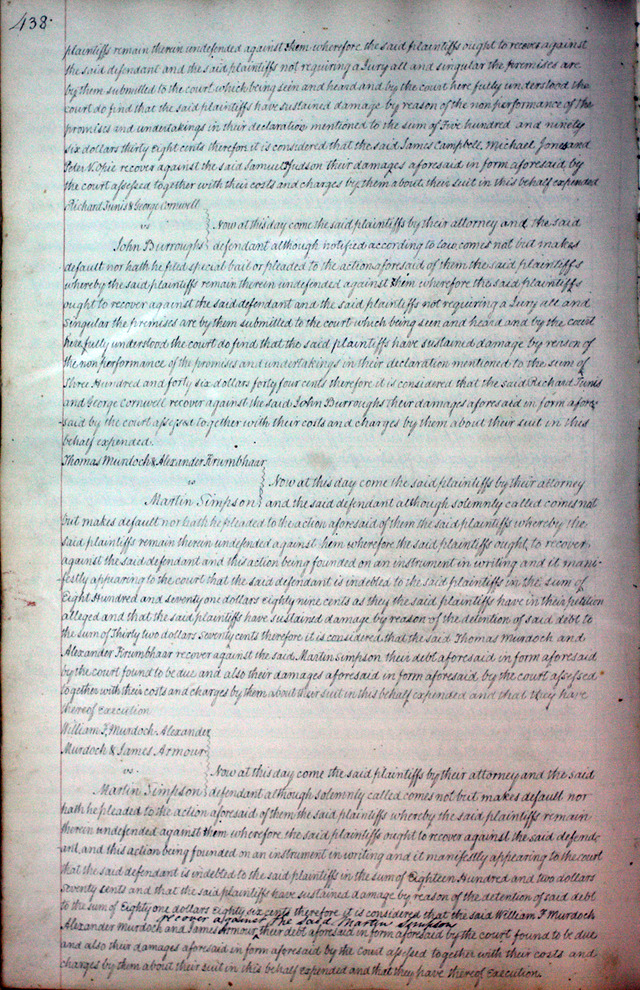 438.
plaintiffs remain therein undefended against them wherefore the said plaintiffs ought to recover against
the said defendant and the said plaintiffs not requiring a Jury all and singular the premises are
by them submitted to the court which being seen and heard and by the court here fully understood the
court do find that the said plaintiffs have sustained damage by reason of the nonperformance of the
promises and undertakings in their declaration mentioned to the sum of Five hundred and ninety
six dollars thirty eight cents therefore it is considered that the said James Campbell, Michael Jones and
Peter V. Obie recover against the said Samuel Hudson their damages aforesaid in form aforesaid by
the court assessed together with their costs and charges by them about their suit in this behalf expended
Richard Tunis & George Cornwell
vs Now at this day come the said plaintiffs by their attorney and the said
John Burroughs defendant although notified according to law, comes not but makes
default nor hath he filed special bail or pleaded to the action aforesaid of them the said plaintiffs
whereby the said plaintiffs remain therein undefended against them wherefore the said plaintiffs
ought to recover against the said defendant and the said plaintiffs not requiring a Jury all and
singular the premises are by them submitted to the court which being seen and heard and by the court
here fully understood the court do find that the said plaintiffs have sustained damage by reason of
the nonperformance of the promises and undertakings in their declaration mentioned to the sum of
Three Hundred and forty six dollars forty four cents therefore it is considered that the said Richard Tunis
and George Cornwell recover against the said John Burroughs their damages aforesaid in form afore-
said by the court assessed together with their costs and charges by them about their suit in this
behalf expended.
Thomas Murdoch & Alexander Krumbhaar
vs Now at this day come the said plaintiffs by their attorney
Martin Simpson and the said defendant although solemnly called comes not
but makes default nor hath he pleaded to the action aforesaid of them the said plaintiffs whereby the
said plaintiffs remain therein undefended against them wherefore the said plaintiffs ought to recover
against the said defendant and this action being founded on an instrument in writing and it mani-
festly appearing to the court that the said defendant is indebted to the said plaintiffs in the sum of
Eight Hundred and seventy one dollars eighty nine cents as they the said plaintiffs have in their petition
alleged and that the said plaintiffs have sustained damage by reason of the detention of said debt to
the sum of Thirty two dollars Seventy cents therefore it is considered that the said Thomas Murdoch and
Alexander Krumbhaar recover against the said Martin Simpson their debt aforesaid in form aforesaid
by the court found to be due and also their damages aforesaid in form aforesaid by the court assessed
together with their costs and charges by them about their suit in this behalf expended and that they have
thereof execution
William F. Murdoch. Alexander
Murdoch & James Armour
vs. Now at this day come the said plaintiffs by their attorney and the said
Martin Simpson defendant although solemnly called comes not but makes default nor
hath he pleaded to the action aforesaid of them the said plaintiffs whereby the said plaintiffs remain
therein undefended against them wherefore the said plaintiffs ought to recover against the said defend-
ant, and this action being founded on an instrument in writing and it manifestly appearing to the court
that the said defendant is indebted to the said plaintiffs in the sum of Eighteen Hundred and two dollars
seventy cents and that the said plaintiffs have sustained damage by reason of the detention of said debt
to the sum of Eighty one dollars Eighty six cents therefore it is considered that the said William F Murdoch
recover against the said Martin Simpson
Alexander Murdoch and James Armour their debt aforesaid in form aforesaid by the court found to be due
and also their damages aforesaid in form aforesaid by the court assessed together with their costs and
charges by them about their suit in this behalf expended and that they have thereof execution.